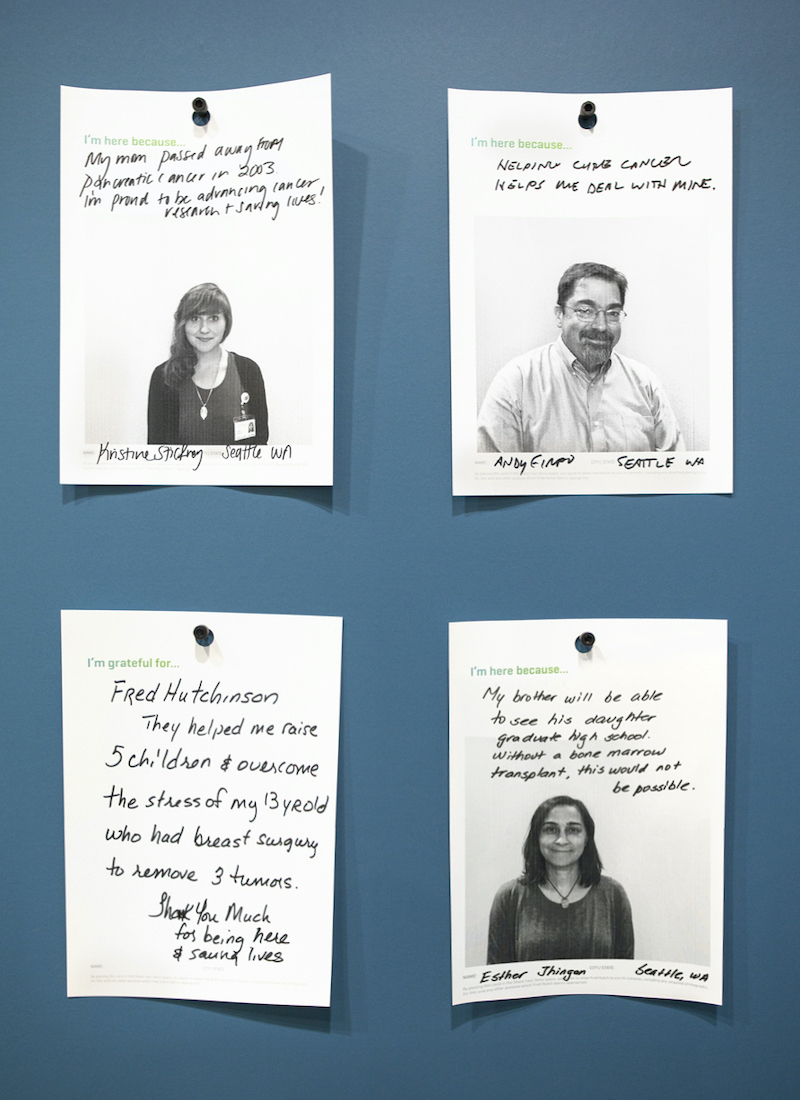 I'm here because...
My mom passed away from
pancreatic cancer in 2003.
I'm proud to be advancing cancer
research + saving lives!
Kristine Stickney Seattle WA
I'm here because...
HELPING CURE CANCER
HELPS ME DEAL WITH MINE.
NAME
ANDY CITY/STATE SEATTLE WA
I'm grateful for...
Fred Hutchinson
They helped me raise
5 children & overcome
the stress of my 13 yr old
who had breast surgury
to remove 3 tumors.
Thank You Much
for being here
& saving lives
NAME CITY/STATE
I'm here because...
My brother will be able
to see his daughter
graduate high school.
Without a bone marrow
transplant, this would not
be possible.
NAME Esther Jhingan CITY/STATE Seattle, WA